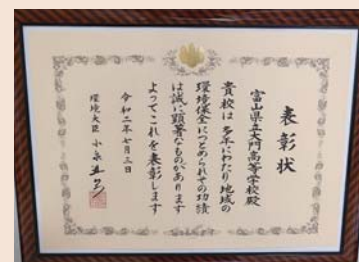 表彰状
富山県立大門高等学校殿
貴校は多年にわたり地域の
環境保全につとめられその功績
は誠に顕著なものがあります
よってこれを表彰します
令和二年七月三日
環境大臣 小泉進次郎